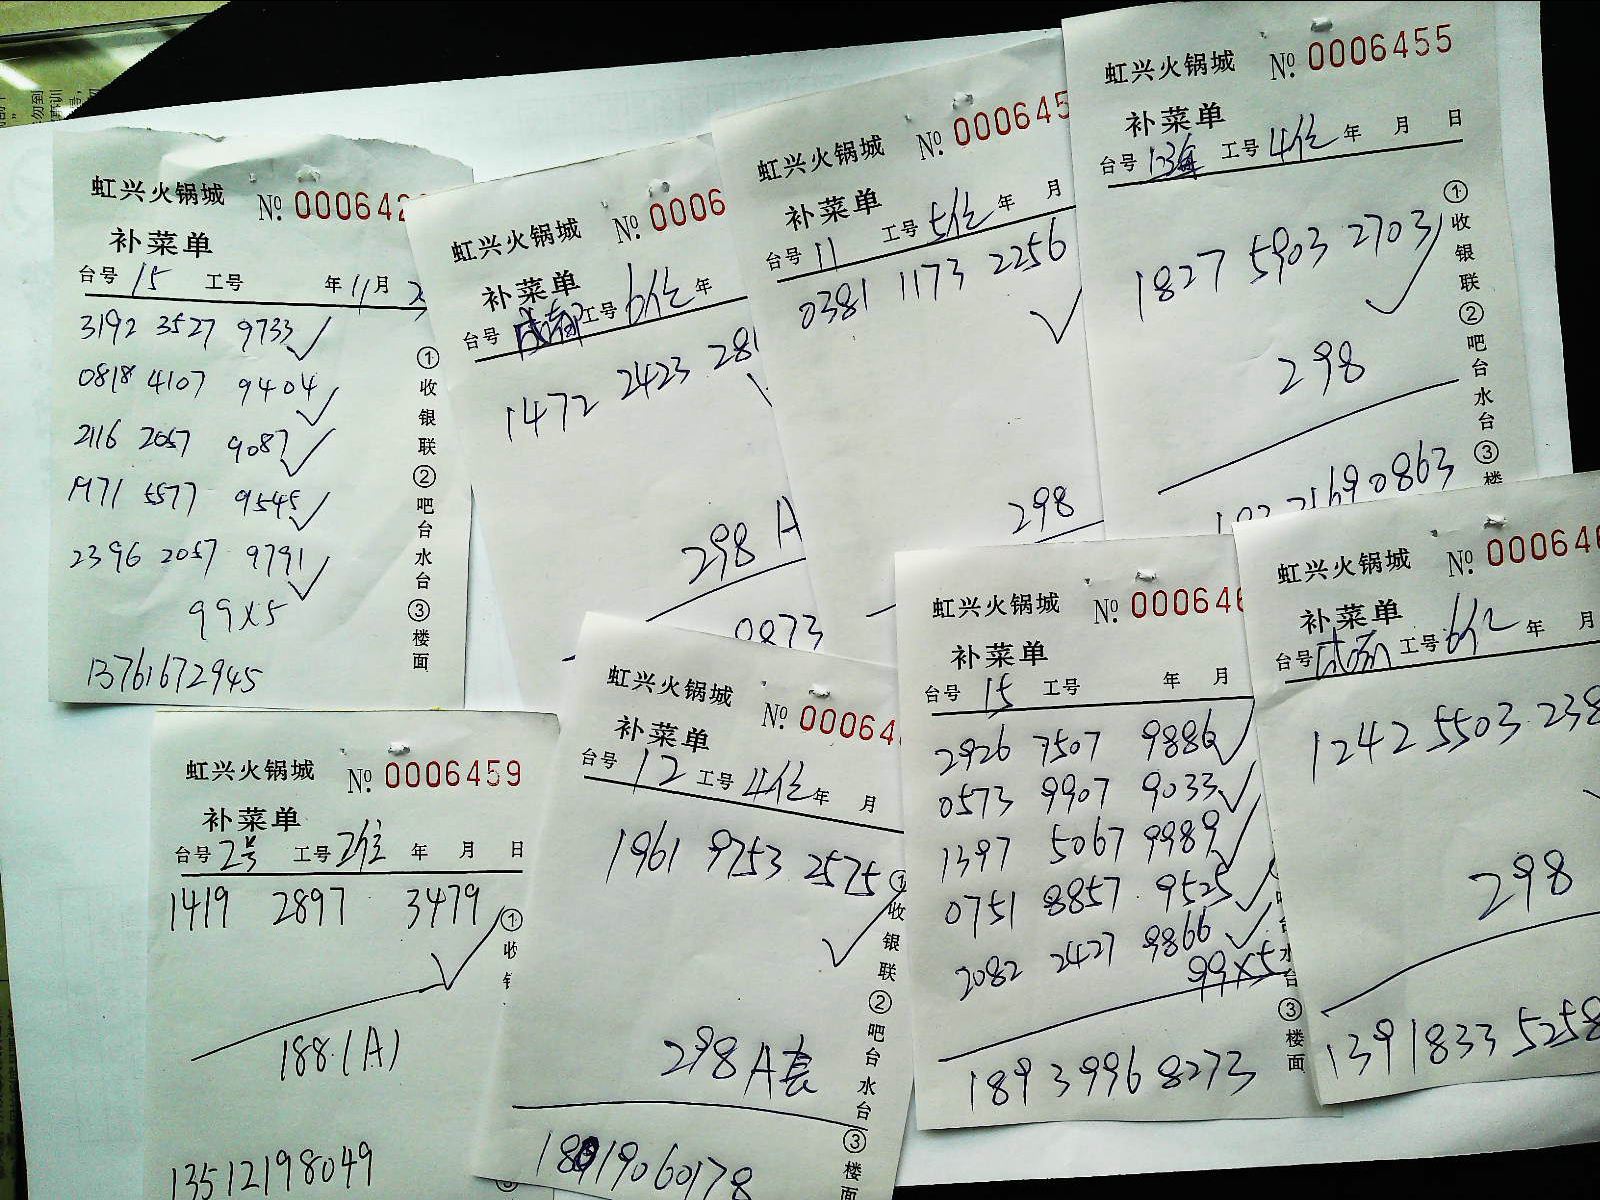 虹兴火锅城 No. 000642
补菜单
台号 15 工号 年 11月 2
3192 3527 9733
0818 4107 9404
2116 2057 9087
1971 5577 9545
2396 2057 9791
99x5
13761672945
①收银联②吧台水台③楼面
虹兴火锅城 No. 0006
补菜单
台号 成都 工号 6位 年
1472 2423 281
298 A
0873
虹兴火锅城 No. 000645
补菜单
台号 11 工号 5位 年 月
0381 1173 2256
298
虹兴火锅城 No. 0006455
补菜单
台号 工号 4位 年 月 日
1827 5903 2703
298
①收银联②吧台水台③楼
虹兴火锅城 No. 0006459
补菜单
台号 2号 工号 2位 年 月 日
1419 2897 3479
188.(A)
13512198049
①收
虹兴火锅城 No. 00064
补菜单
台号 12 工号 4位 年 月
1961 9753 2575
298A套
18019060178
①收银联②吧台水台③楼面
虹兴火锅城 No. 000646
补菜单
台号 15 工号 年 月
2926 7507 9886
0573 9907 9033
1397 5067 9989
0751 8857 9525
2082 2427 9866
99x5
189 3996 8273
台水台③楼面
虹兴火锅城 No. 000646
补菜单
台号 工号 6位 年 月
1242 5503 238
298
1391833 5258